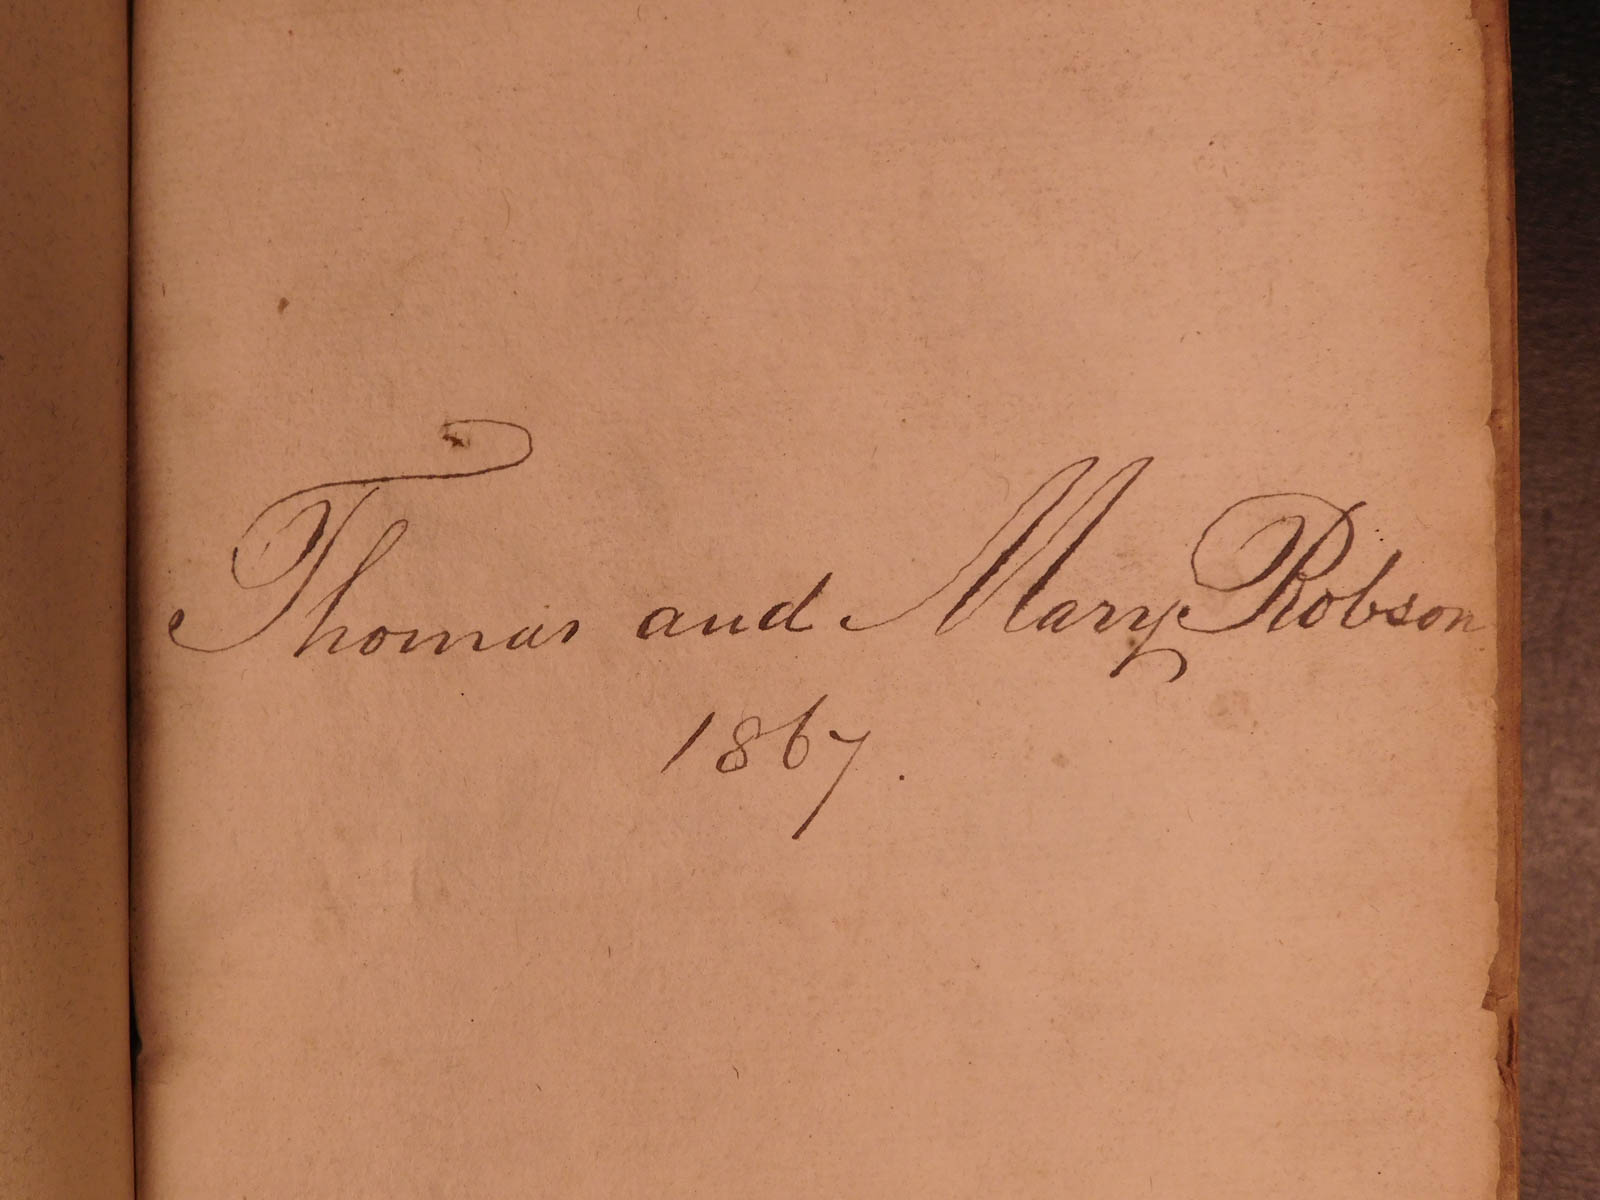 Thomas and Mary Robson
1867.